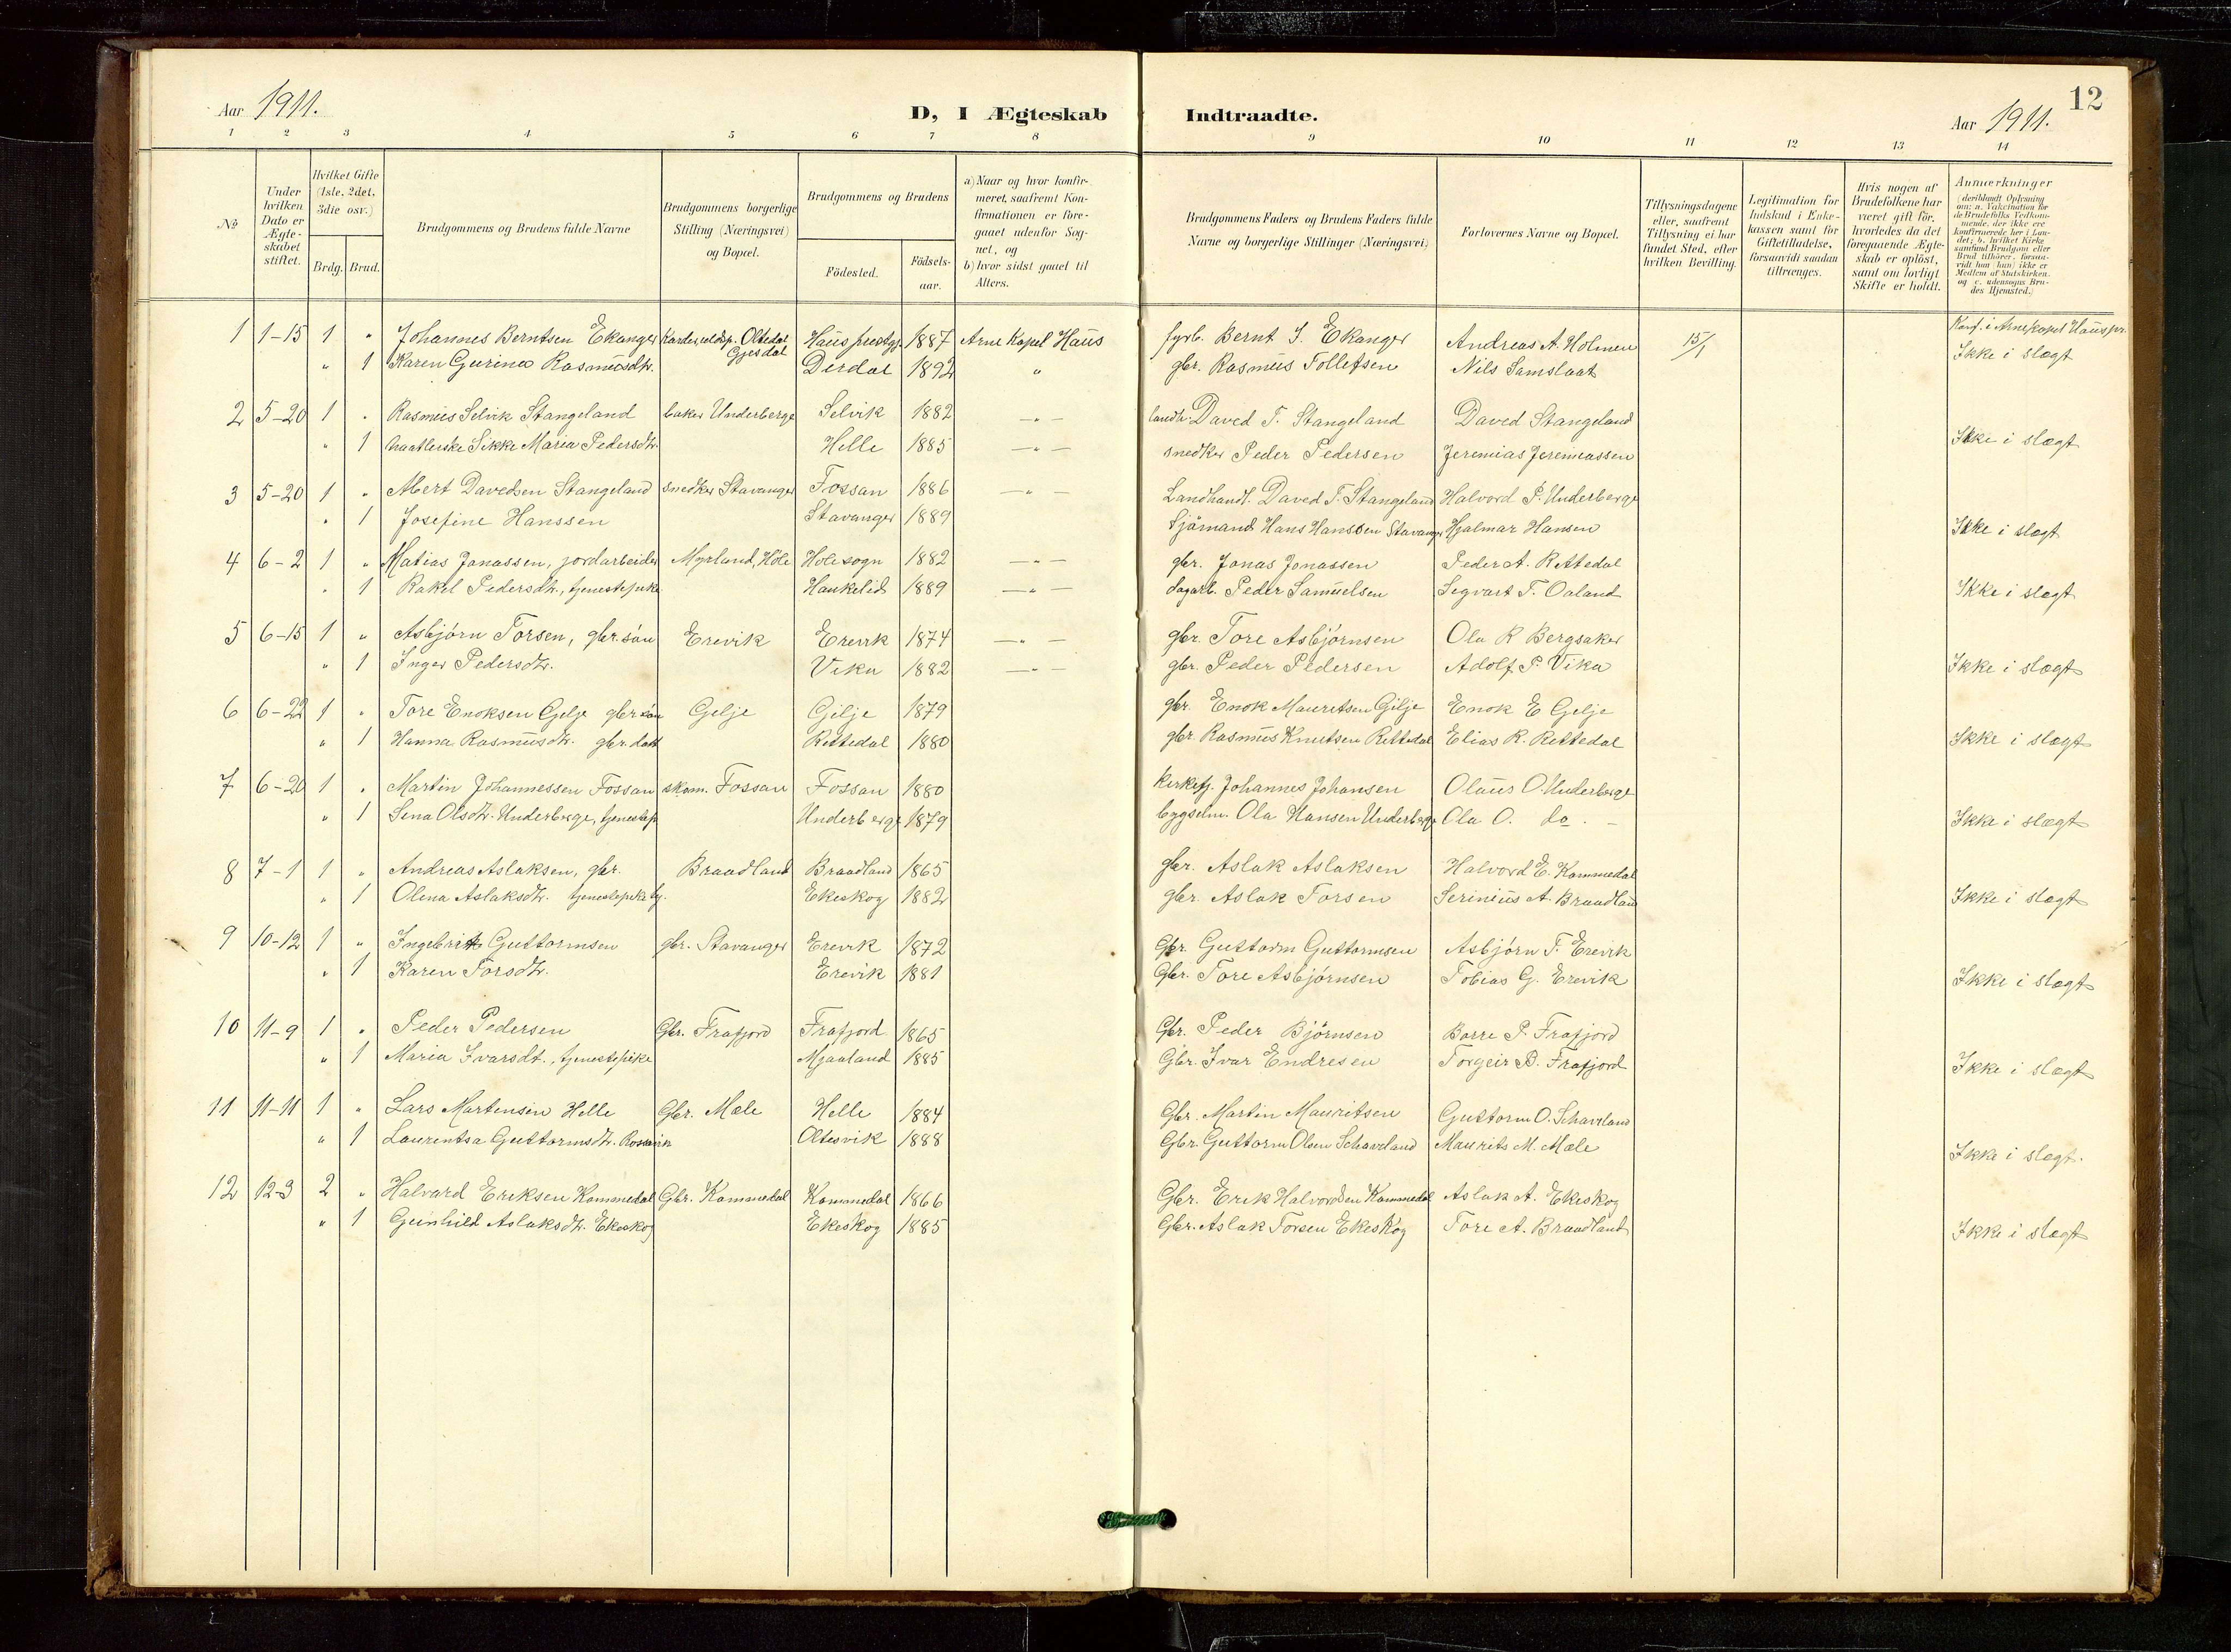 12
Aar 1911. D, I Ægteskab Indtraadte. Aar 1911.
1 2 3 4 5 6 7 8 9 10 11 12 13 14
№
Under hvilken Dato er Ægte-skabet stiftet.
Hvilket Gifte (1ste, 2det, 3die osv.)
Brdg. Brud.
Brudgommens og Brudens fulde Navne
Brudgommens borgerlige Stilling (Næringsvei) og Bopæl.
Brudgommens og Brudens
Födested. Födsels-aar.
a) Naar og hvor konfir-meret, saafremt Kon-firmationen er fore-gaaet udenfor Sog-net, og
b) hvor sidst gaaet til Alters.
Brudgommens Faders og Brudens Faders fulde Navne og borgerlige Stillinger (Næringsvei)
Forlovernes Navne og Bopæl.
Tillysningsdagene eller, saafremt Tillysning ei har fundet Sted, efter hvilken Bevilling.
Legitimation for Indskud i Enke-kassen samt for Giftetilladelse, forsaavidt saadan tiltrænges.
Hvis nogen af Brudefolkene har været gift för, hvorledes da det foregaaende Ægte-skab er oplöst, samt om lovligt Skifte er holdt.
Anmerkninger (deriblandt Oplysning om: a. Vakcination for de Brudefolks Vedkom-mende, der ikke ere konfirmerede her i Lan-det; b. hvilket Kirke samfund Brudgom eller Brud tilhörer, forsaa-vidt han (hun) ikke er Medlem af Statskirken. og c. udensogns Bru-des Hjemsted.)
1 1-15 1 " Johannes Berntsen Ekanger Oltedal Gjesdal Haus prestgj. 1887 Arne Kapel Haus fyrb. Bernt J. Ekanger Andreas A. Holmen 15/1 Konf. i Arne kapel Haus pr.
" 1 Karen Gurina Rasmusdtr. Dirdal 1892 " gbr. Rasmus Tollefsen Nils Samslaat Ikke i slægt
2 5-20 1 " Rasmus Selvik Stangeland baker Underberge Selvik 1882 —"— landh. Daved T. Stangeland Daved Stangeland
" 1 Sikke Maria Pedersdtr. Helle 1885 —"— snedker Peder Pedersen Jeremias Jeremiassen Ikke i slægt
3 5-20 1 " Albert Davedsen Stangeland snedker Stavanger Fossan 1886 —"— Landhandl. Daved T. Stangeland Halvord P. Underberge
" 1 Josefine Hanssen Stavanger 1889 Sjömand Hans Hanssen Stavanger Hjalmar Hansen Ikke i slægt
4 6-2 1 " Matias Jonassen, jordarbeider Myrland, Höle Höle sogn 1882 —"— gbr. Jonas Jonassen Peder A. Rettedal
" 1 Rakel Pedersdtr., tjenestepike Haukelid 1889 —"— dagarb. Peder Samuelsen Segvart T. Oaland Ikke i slægt
5 6-15 1 " Asbjörn Torsen, gbr.sön Erevik Erevik 1874 —"— gbr. Tore Asbjörnsen Ola R Bergsaker
" 1 Inger Pedersdtr. Vika 1882 —"— gbr. Peder Pedersen Adolf P. Vika Ikke i slægt
6 6-22 1 " Tore Enoksen Gelje gbr sön Gelje Gilje 1879 gbr. Enok Mauretsen Gilje Enok E Gelje
" 1 Hanna Rasmusdtr. gbr. datt Rettedal 1880 gbr. Rasmus Knutsen Rettedal Elias R. Rettedal Ikke i slægt
7 6-20 1 " Martin Johannessen Fossan skom. Fossan Fossan 1880 kirketj. Johannes Johansen Olaus O. Underberge
" 1 Sena Olsdtr. Underberge, tjenestep Underberge 1879 bygselm. Ola Hansen Underberge Ola O. do. - Ikke i slægt
8 7-1 1 " Andreas Aslaksen, gbr. Braadland Braadland 1865 gbr. Aslak Aslaksen Halvord E. Kommedal
" 1 Olena Aslaksdtr. tjenestepike Ekeskog 1882 gbr. Aslak Torsen Serinius A. Braadland Ikke i slægt
9 10-12 1 " Ingebrikt Guttormsen gbr. Stavanger Erevik 1872 Gbr. Guttorm Guttormsen Asbjörn T. Erevik
" 1 Karen Torsdtr. Erevik 1881 Gbr. Tore Asbjörnsen Tobias G. Erevik Ikke i slægt
10 11-9 1 " Peder Pedersen Gbr. Frafjord Frafjord 1865 Gbr. Peder Björnsen Borre P. Frafjord
" 1 Maria Ivarsdt., tjenestepike Mjaaland 1885 Gbr. Ivar Endresen Torgeir B. Frafjord Ikke i slægt
11 11-11 1 " Lars Martensen Helle Gbr. Mæle Helle 1884 Gbr. Martin Mauritsen Guttorm O. Schaveland
" 1 Laurentsa Guttormsdtr. Oltesvik 1888 Gbr. Guttorm Olsen Schaveland Maurits M. Mæle Ikke i slægt.
12 12-3 2 " Halvard Eriksen Kommedal Gbr. Kommedal Kommedal 1866 Gbr. Erik Halvordsen Kommedal Aslak A. Ekeskog
" 1 Gunhild Aslaksdtr. Ekeskog Ekeskog 1885 Gbr. Aslak Torsen Ekeskog Tore A. Braadland Ikke i slægt